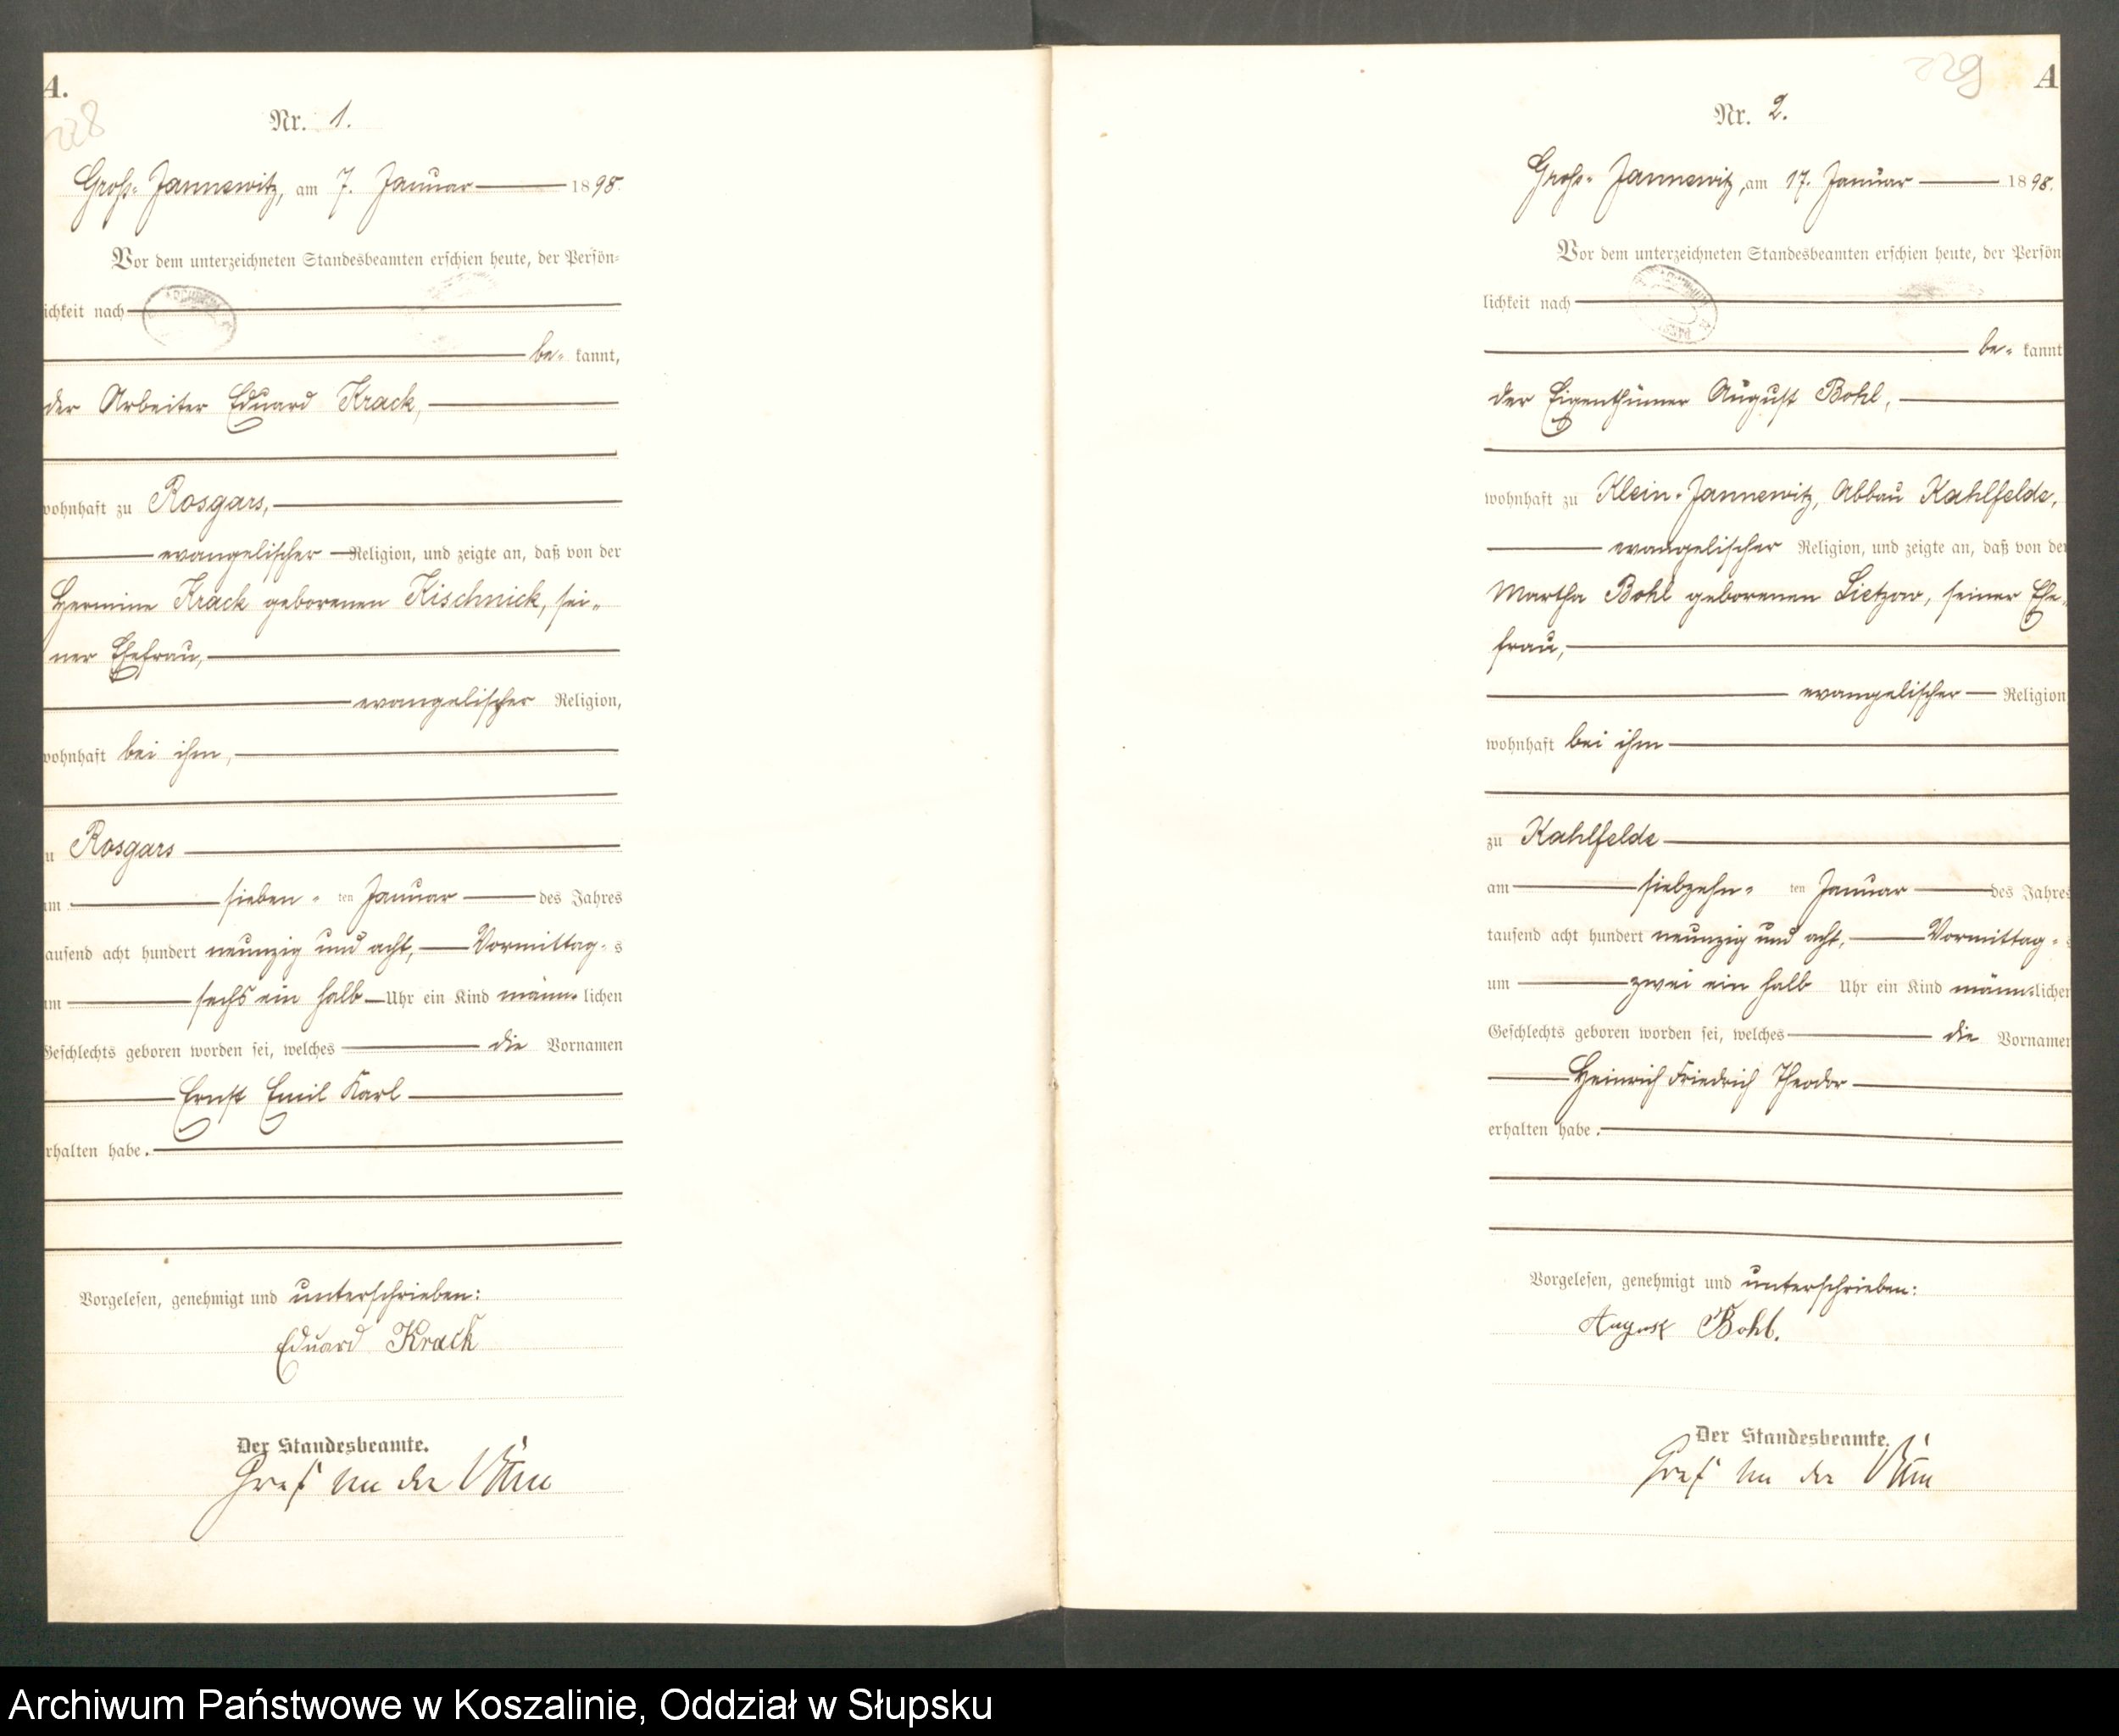 A.
228
Nr. 1.
Groß-Jannewitz, am 7. Januar 1898.
Vor dem unterzeichneten Standesbeamten erschien heute, der Persön-
ichkeit nach
be- kannt,
der Arbeiter Eduard Krack,
wohnhaft zu Rosgars,
evangelischer Religion, und zeigte an, daß von der
Hermine Krack geborenen Kischnick, sei-
ner Ehefrau,
evangelischer Religion,
wohnhaft bei ihm,
u Rosgars
am sieben- ten Januar des Jahres
tausend acht hundert neunzig und acht, Vormittag- s
um sechs ein halb Uhr ein Kind männ- lichen
Geschlechts geboren worden sei, welches die Vornamen
Ernst Emil Karl
erhalten habe.
Vorgelesen, genehmigt und unterschrieben:
Eduard Krack
Der Standesbeamte.
Graf von der
229
A
Nr. 2.
Groß-Jannewitz, am 17. Januar 1898.
Vor dem unterzeichneten Standesbeamten erschien heute, der Persön
lichkeit nach
be- kannt
der Eigenthümer August Bohl,
wohnhaft zu Klein-Jannewitz, Abbau Kahlfelde,
evangelischer Religion, und zeigte an, daß von der
Martha Bohl geborenen Lietzow, seiner Ehe-
frau,
evangelischer Religion
wohnhaft bei ihm
zu Kahlfelde
am siebzehn- ten Januar des Jahres
tausend acht hundert neunzig und acht, Vormittag-
um zwei ein halb Uhr ein Kind männ-lichen
Geschlechts geboren worden sei, welches die Vornamen
Heinrich Friedrich Theodor
erhalten habe.
Vorgelesen, genehmigt und unterschrieben:
August Bohl.
Der Standesbeamte.
Graf von der
Archiwum Państwowe w Koszalinie, Oddział w Słupsku